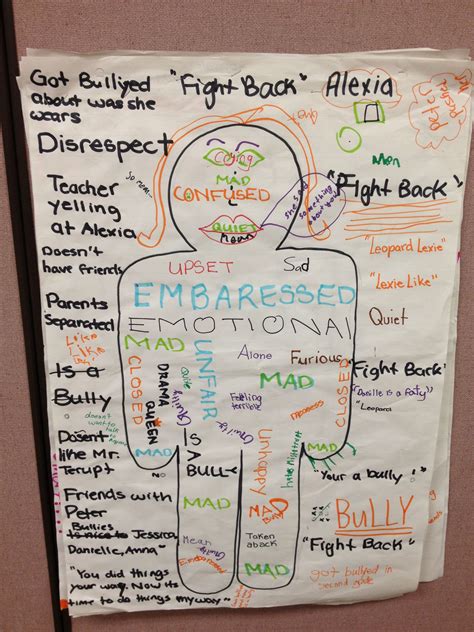 Got Bullyed "Fight Back" Alexia
about was she
wears
Disrespect
Teacher
yelling
at Alexia
Doesn't
have friends
Parents
Separated
Like
Like
Is a
Bully
doesn't
want to
talk
Dosent
like Mr.
Terupt
Friends with
Peter
Bullies
Is nice to Jessica,
Danielle, Anna
"You did things
your way. Now its
time to do things my way"
Crying
MAD
CONFUSED
QUIET
Mean
she said
something
about you
UPSET
Sad
EMBARESSED
EMOTIONAL
MAD
UNFAIR
Alone
Furious
CLOSED
DRAMA
QUEEN
Guilty
MAD
Feeling
terrible
CLOSED
IS
A
BULLY
Guilty
Unhappy
MAD
MAD
MAD
Mean
Taken
aback
Guilty
Embaressed
MAD
Peter
Men
"Fight Back"
"Leopard Lexie"
"Lexie Like"
Quiet
"Fight Back"
"Danille is a fatty"
"Leopard
"Your a bully!"
BuLLY
"Fight Back"
got bullyed in
second grade